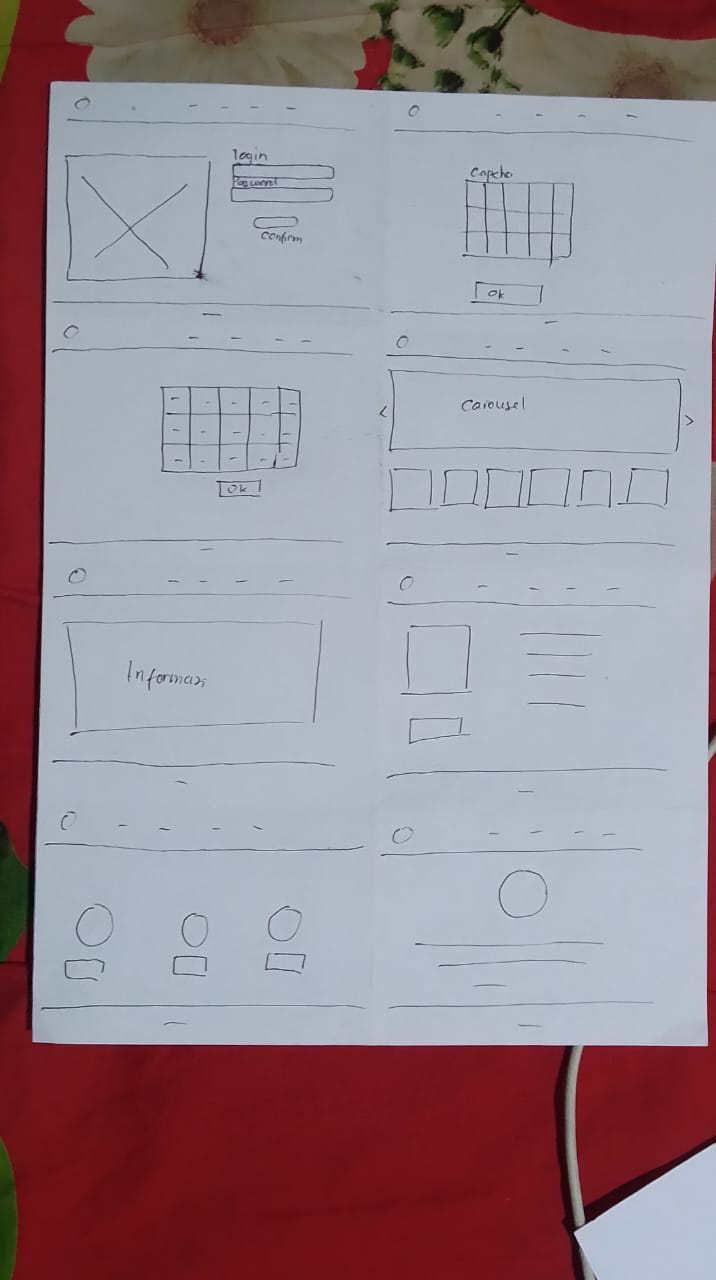 login
Password
Confirm
Capcha
Ok
Ok
Carousel
Informasi